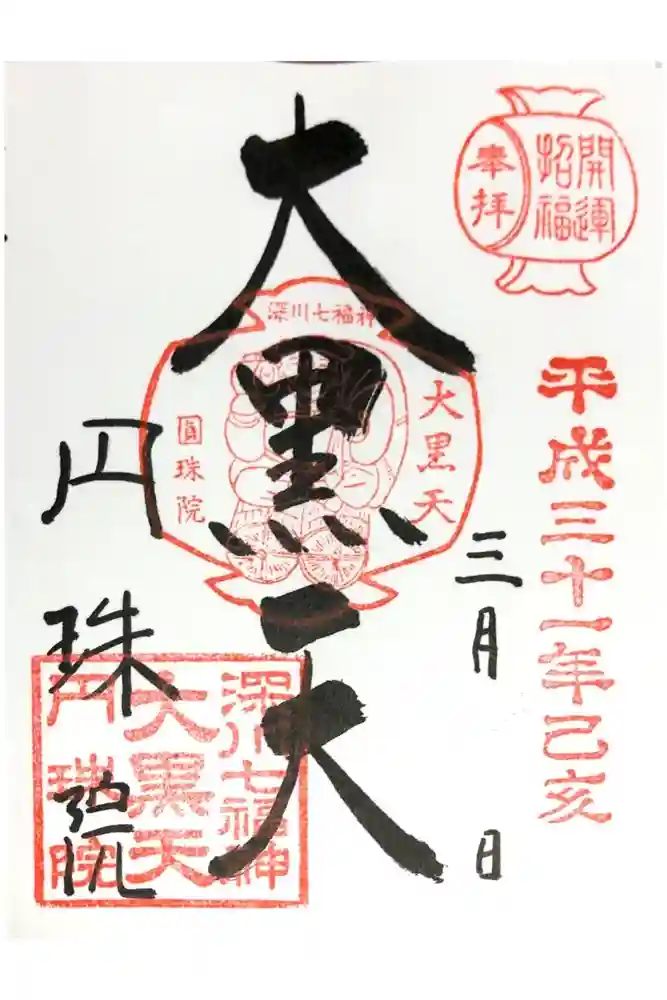 開運
招福
奉拝
平成三十一年己亥
三月 日
大黒天
深川七福神
大黒天
圓珠院
円珠院
深川七福神
大黒天
円珠院